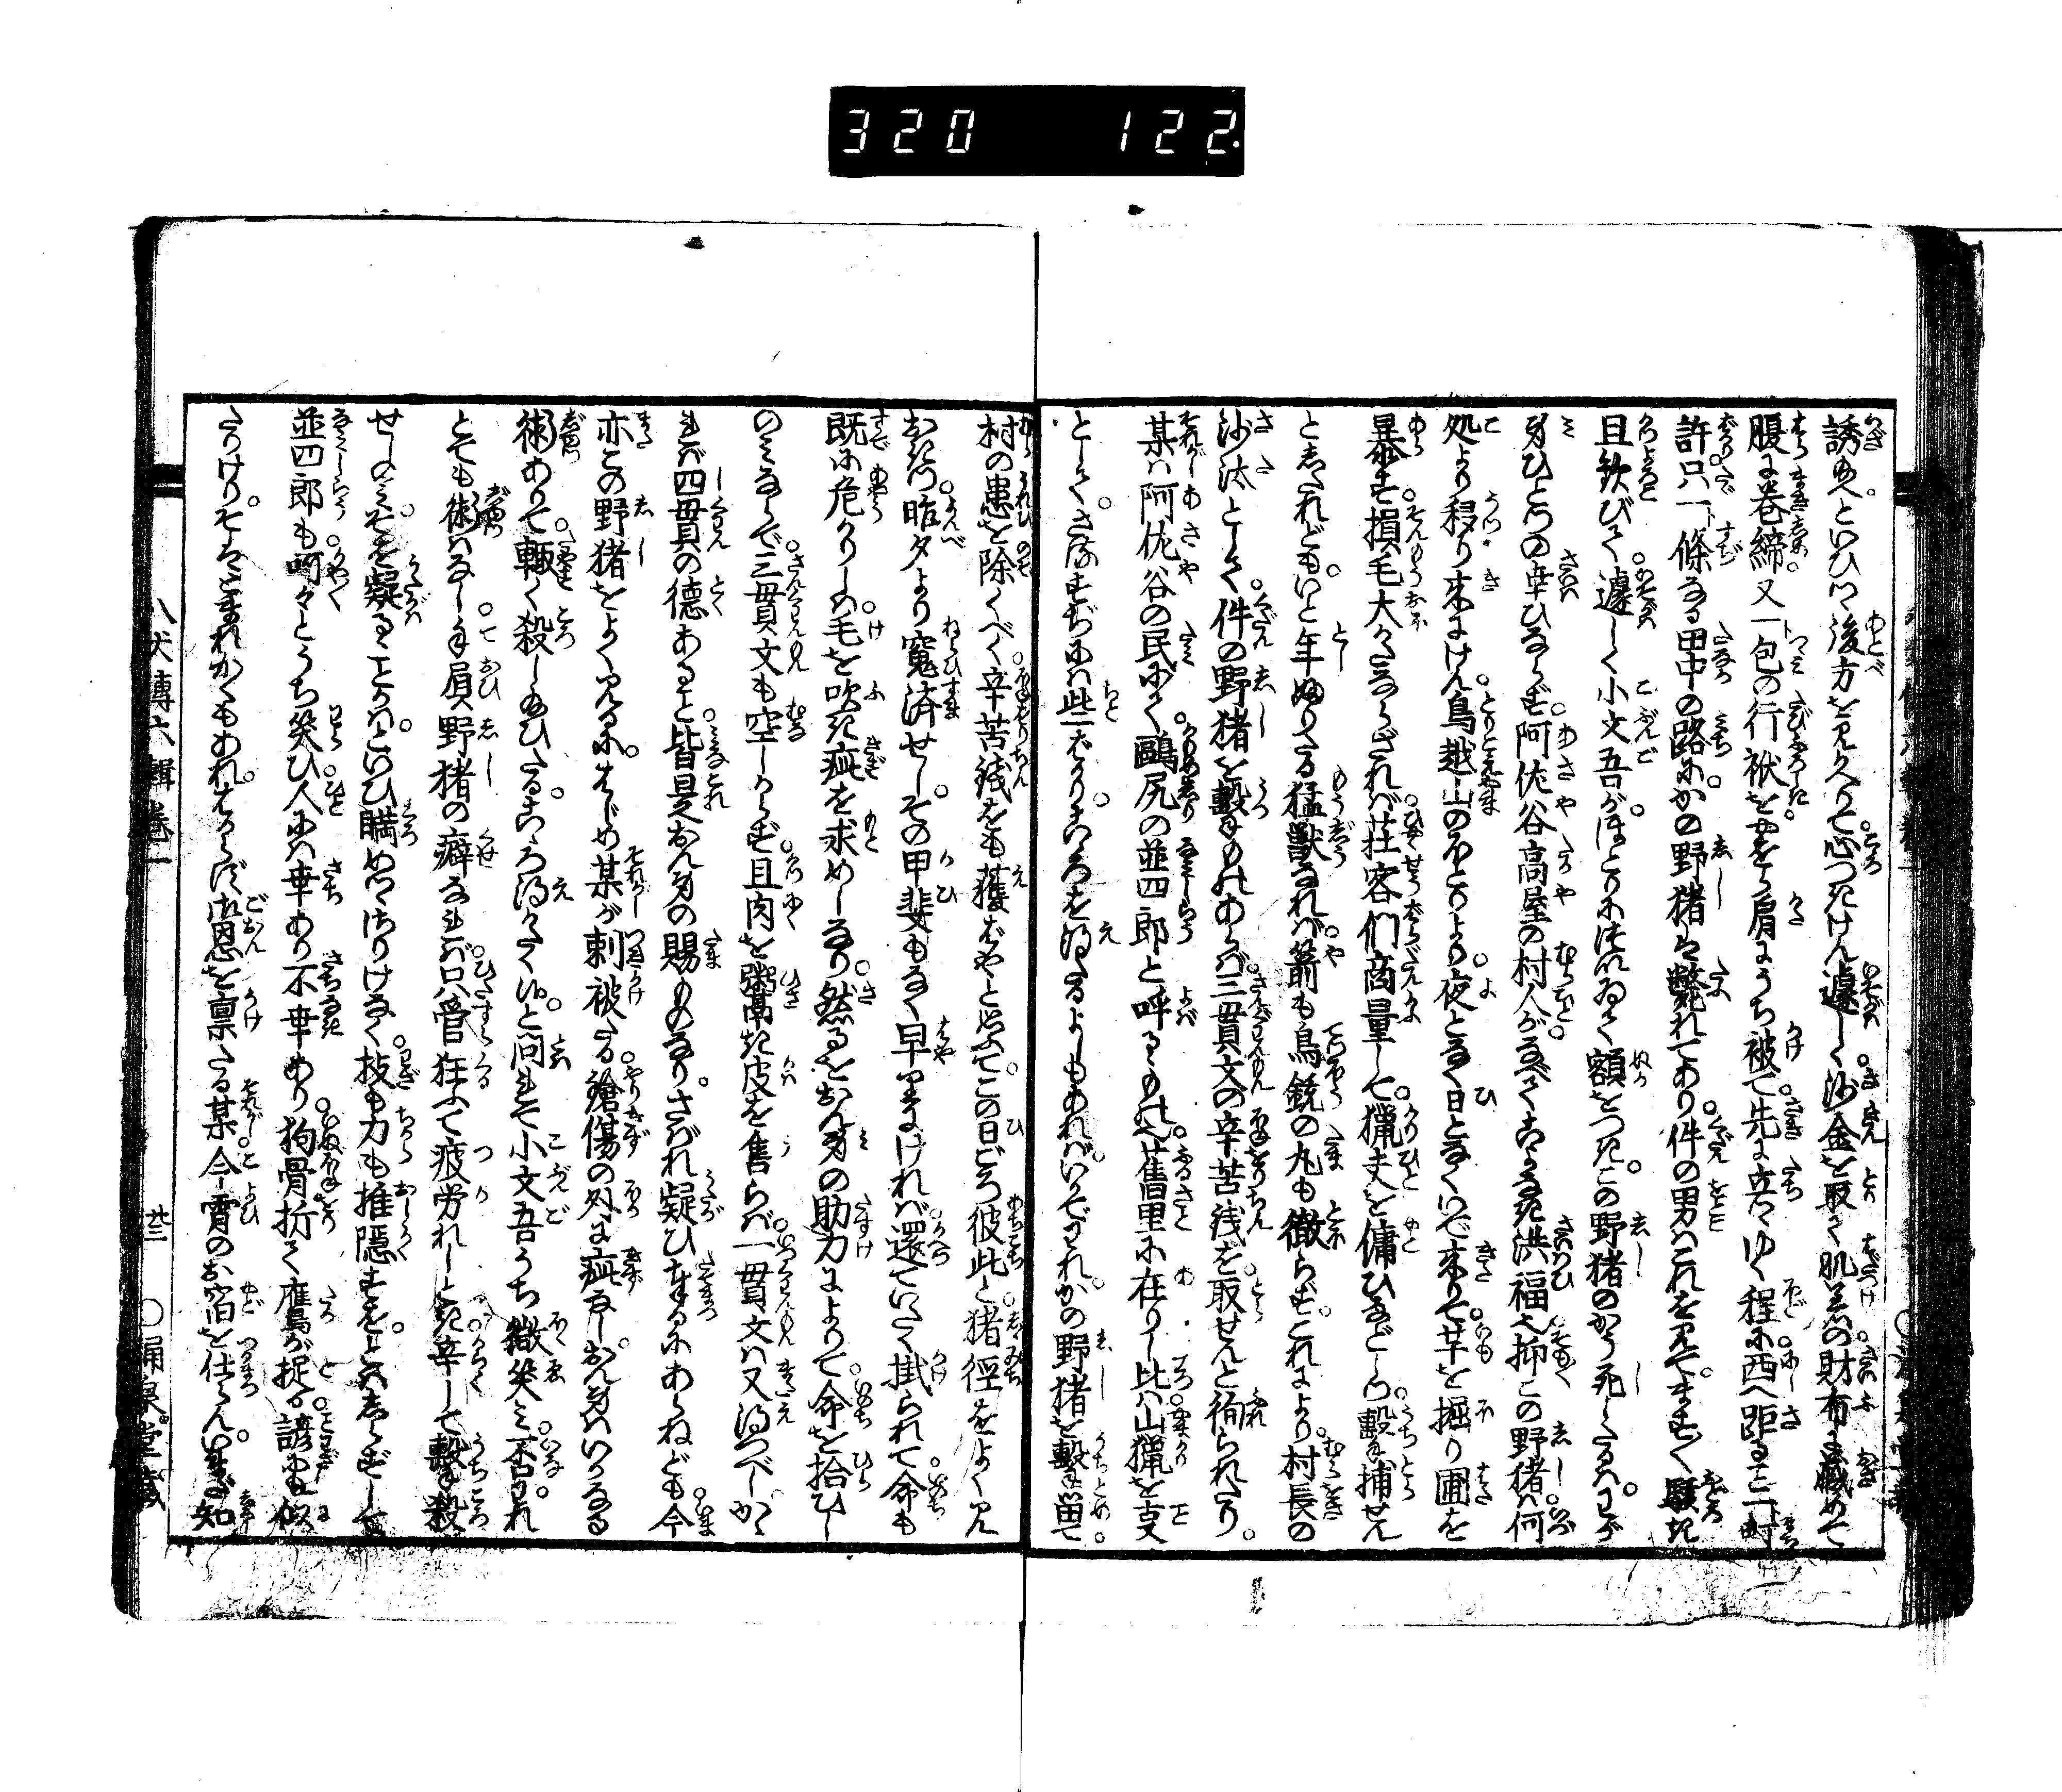 320 122
誘給へ。といひつゝ後方を見かへりて。心つきけん遽しく。沙金を取て肌着の。財布に藏めて
腹に巻締。又一包の行袱を。やをら肩にうち被て。先に立てゆく程に。西へ距ること一町
許。只一條なる田中の路に。かの野猪は斃れてあり。件の男はこれを見て。ますます駭き
且歓びて。遽しく小文吾が。ほとりに跪居て額をつき。この野猪のかう死したるは。わが
身ひとつの幸ひならず。阿佐谷高屋の村人が。なべてこよなき洪福也。抑この野猪は。何
処より移り来にけん。鳥越山のほとりより。夜となく日となくいで来りて。芋を掘り圃を
暴す。損毛大かたならざれば。荘客們商量して。猟夫を傭ひなどしつ。撃も捕せん
と志たれども。いと年ふりたる猛獣なれば。箭も鳥銃の丸も徹らず。これにより。村長の
沙汰として。件の野猪を撃ものあらば。三貫文の辛苦銭を。取せんと徇られたり。
某は阿佐谷の民にて。鷗尻の並四郎と呼るゝもの也。舊里に在りし比は。山猟を支
として。さるすぢには些ばかり。こゝろを得たるよしもあれば。いでわれ。かの野猪を撃留て。
村の患を除くべく。辛苦銭をも獲ばやと思ふて。この日ごろ彼此と。猪徑をよく見
おきつ。昨夕より窺済せし。その甲斐もなく早りにければ。還ていたく掛られて。命も
既に危かりしに。毛を吹き疵を求めしなり。然るをおん身の助力によりて。命を拾ひし
のみならで。三貫文も空しからず。且肉を粥ぎ皮を售らば。一貫文は又得つべし。かゝ
れば四貫の徳あること。皆是おん身の賜ものなり。さばれ疑ひまするにあらねども。今
亦この野猪をよく見るに。はじめ某が刺被たる。鎗傷の外に疵なし。おん身はいかなる
術ありて。輙く殺し給ひたる。こゝろ得がたく侍。と問れて小文吾うち微笑み。否われ
とても術はなし。手屓野猪の癖なれば。只管狂ふて疲労れしとき。辛して撃も殺
せしのみ。そを疑ることかは。といひ瞞めつゝほこりげなく。技も力も推隠すを。よくは志らずして
並四郎も。呵々とうち笑ひ。人には幸あり不幸あり。狗骨折て鷹が捉る。諺にも似
たりけり。そはとまれかくもあれ。はからず御恩を稟たる某。今宵のお宿を仕らん。いまだ知
八犬傳六輯巻一 廿三 〇涌泉堂藏